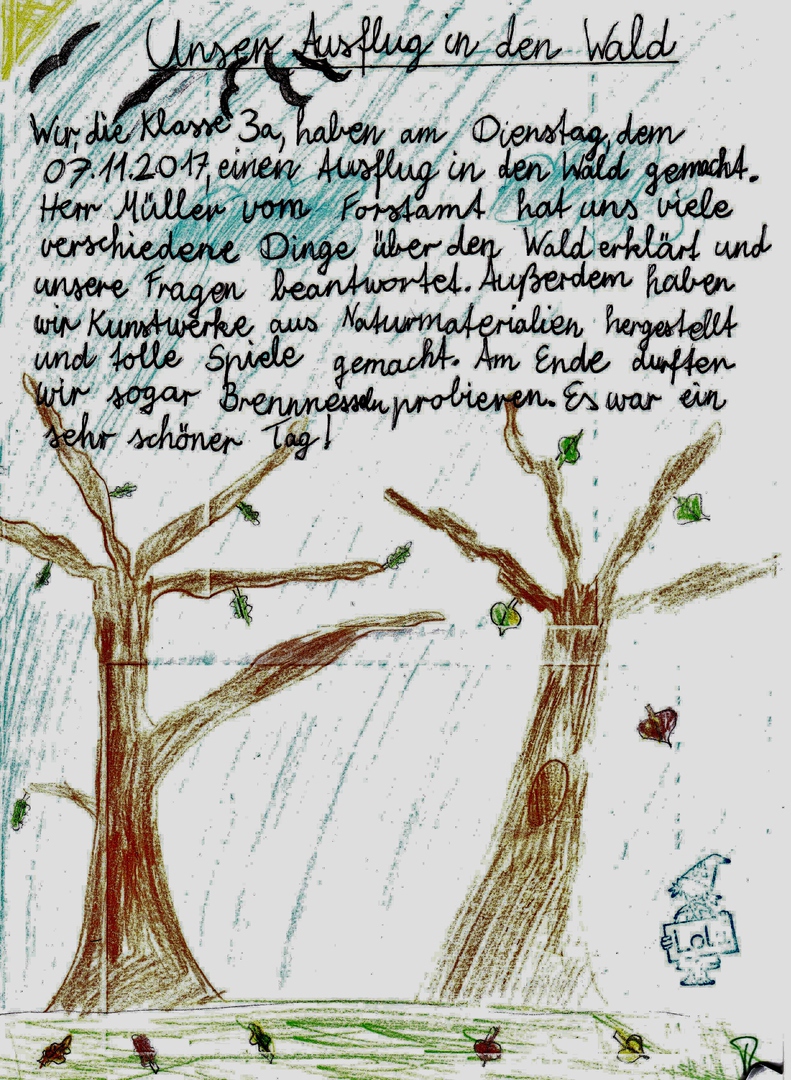 Unser Ausflug in den Wald
Wir, die Klasse 3a, haben am Dienstag, dem
07.11.2017, einen Ausflug in den Wald gemacht.
Herr Müller vom Forstamt hat uns viele
verschiedene Dinge über den Wald erklärt und
unsere Fragen beantwortet. Außerdem haben
wir Kunstwerke aus Naturmaterialien hergestellt
und tolle Spiele gemacht. Am Ende durften
wir sogar Brennnesseln probieren. Es war ein
sehr schöner Tag!